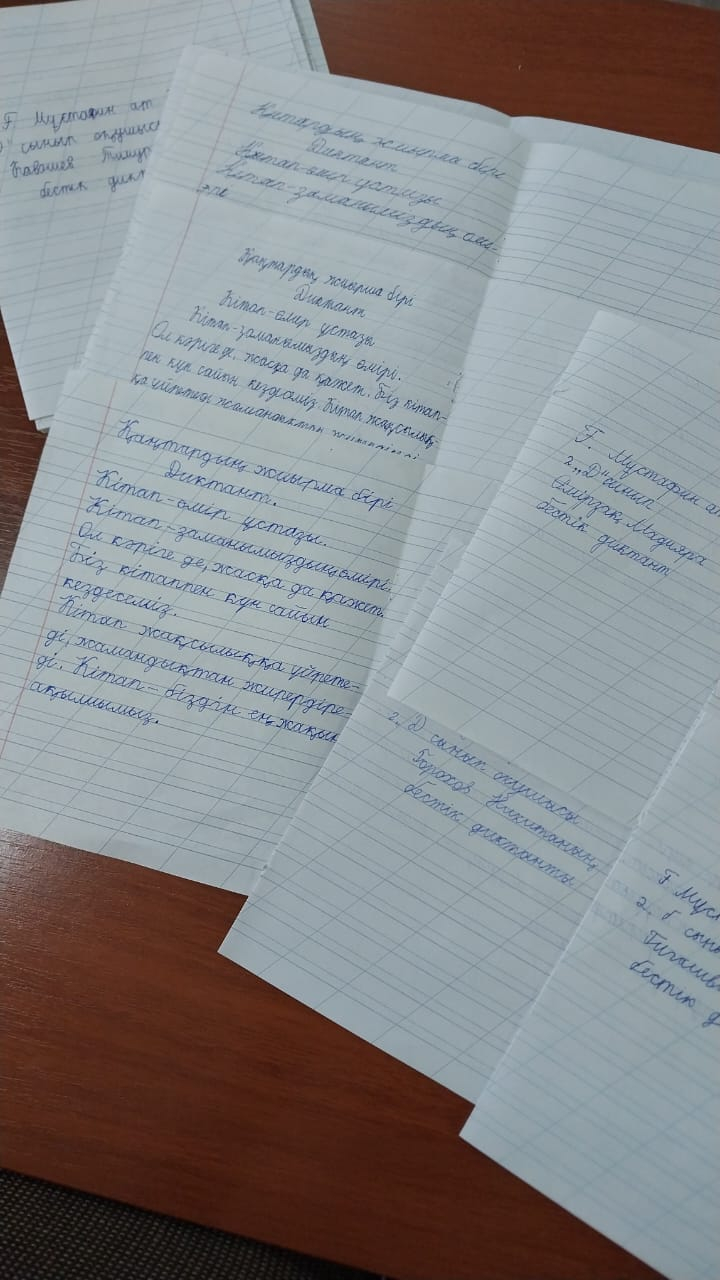 Ғ Мұстафин ат
сынып оқушысы
Тимур
бестік дикт
Қаңтардың жиырма бірі
Диктант
Кітап-өмір ұстазы
Кітап-заманымыздың өмі-
Қаңтардың жиырма бірі
Диктант
Кітап-өмір ұстазы
Кітап-заманымыздың өмірі.
Ол кәріге де, жасқа да қажет. Біз кітап-
пен күн сайын кездесеміз. Кітап жақсылық-
қа үйретеді жамандықтан
Қаңтардың жиырма бірі
Диктант.
Кітап-өмір ұстазы.
Кітап-заманымыздың өмірі.
Ол кәріге де, жасқа да қажет.
Біз кітаппен күн сайын
кездесеміз.
Кітап жақсылыққа үйрете-
ді, жамандықтан жирердіре-
ді. Кітап-біздің ең жақын
ақылшымыз.
Ғ. Мұстафин ат
2 „Д" сынып
Өмірзақ Мадияра
бестік диктант
2 „Д сынып оқушысы
Горохов Никитаның
бестік диктанты
Ғ Мұс
2 „ сыны
бестік д